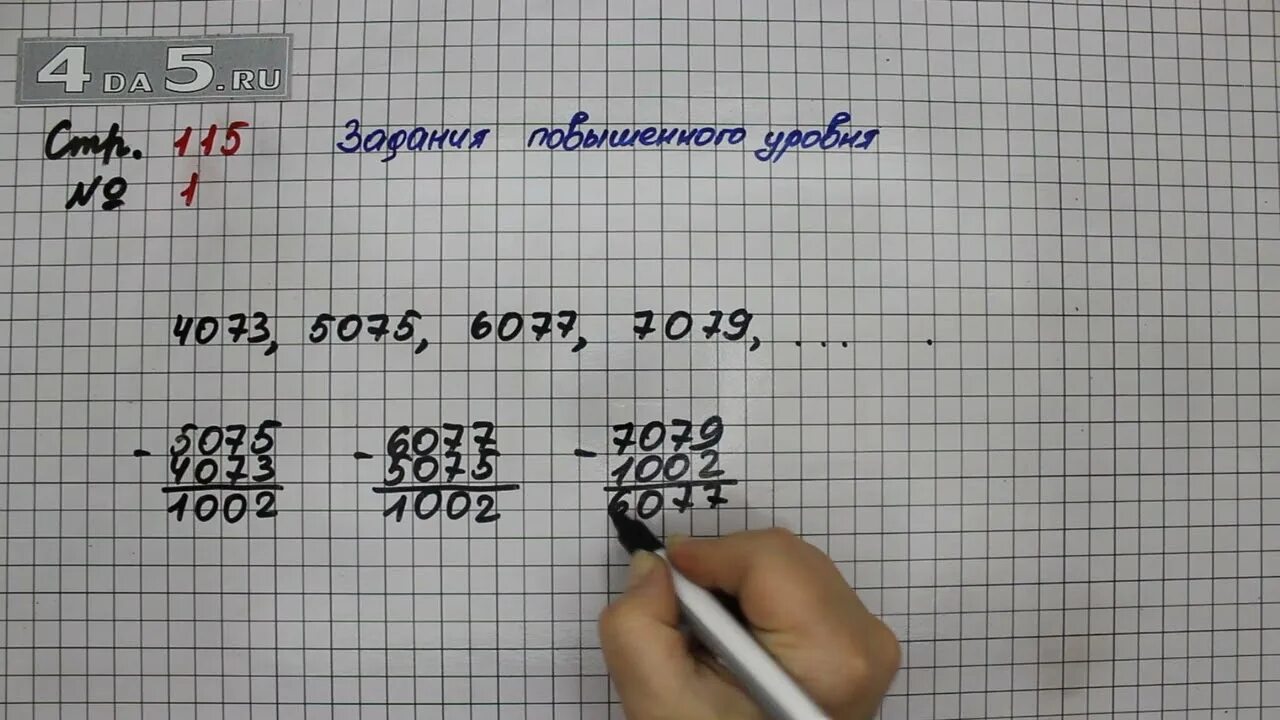 4DA5.RU
Стр. 115 Задания повышенного уровня
№ 1
4073, 5075, 6077, 7079, ... .
- 5075 - 6077 - 7079
4073 5075 1002
1002 1002 6077